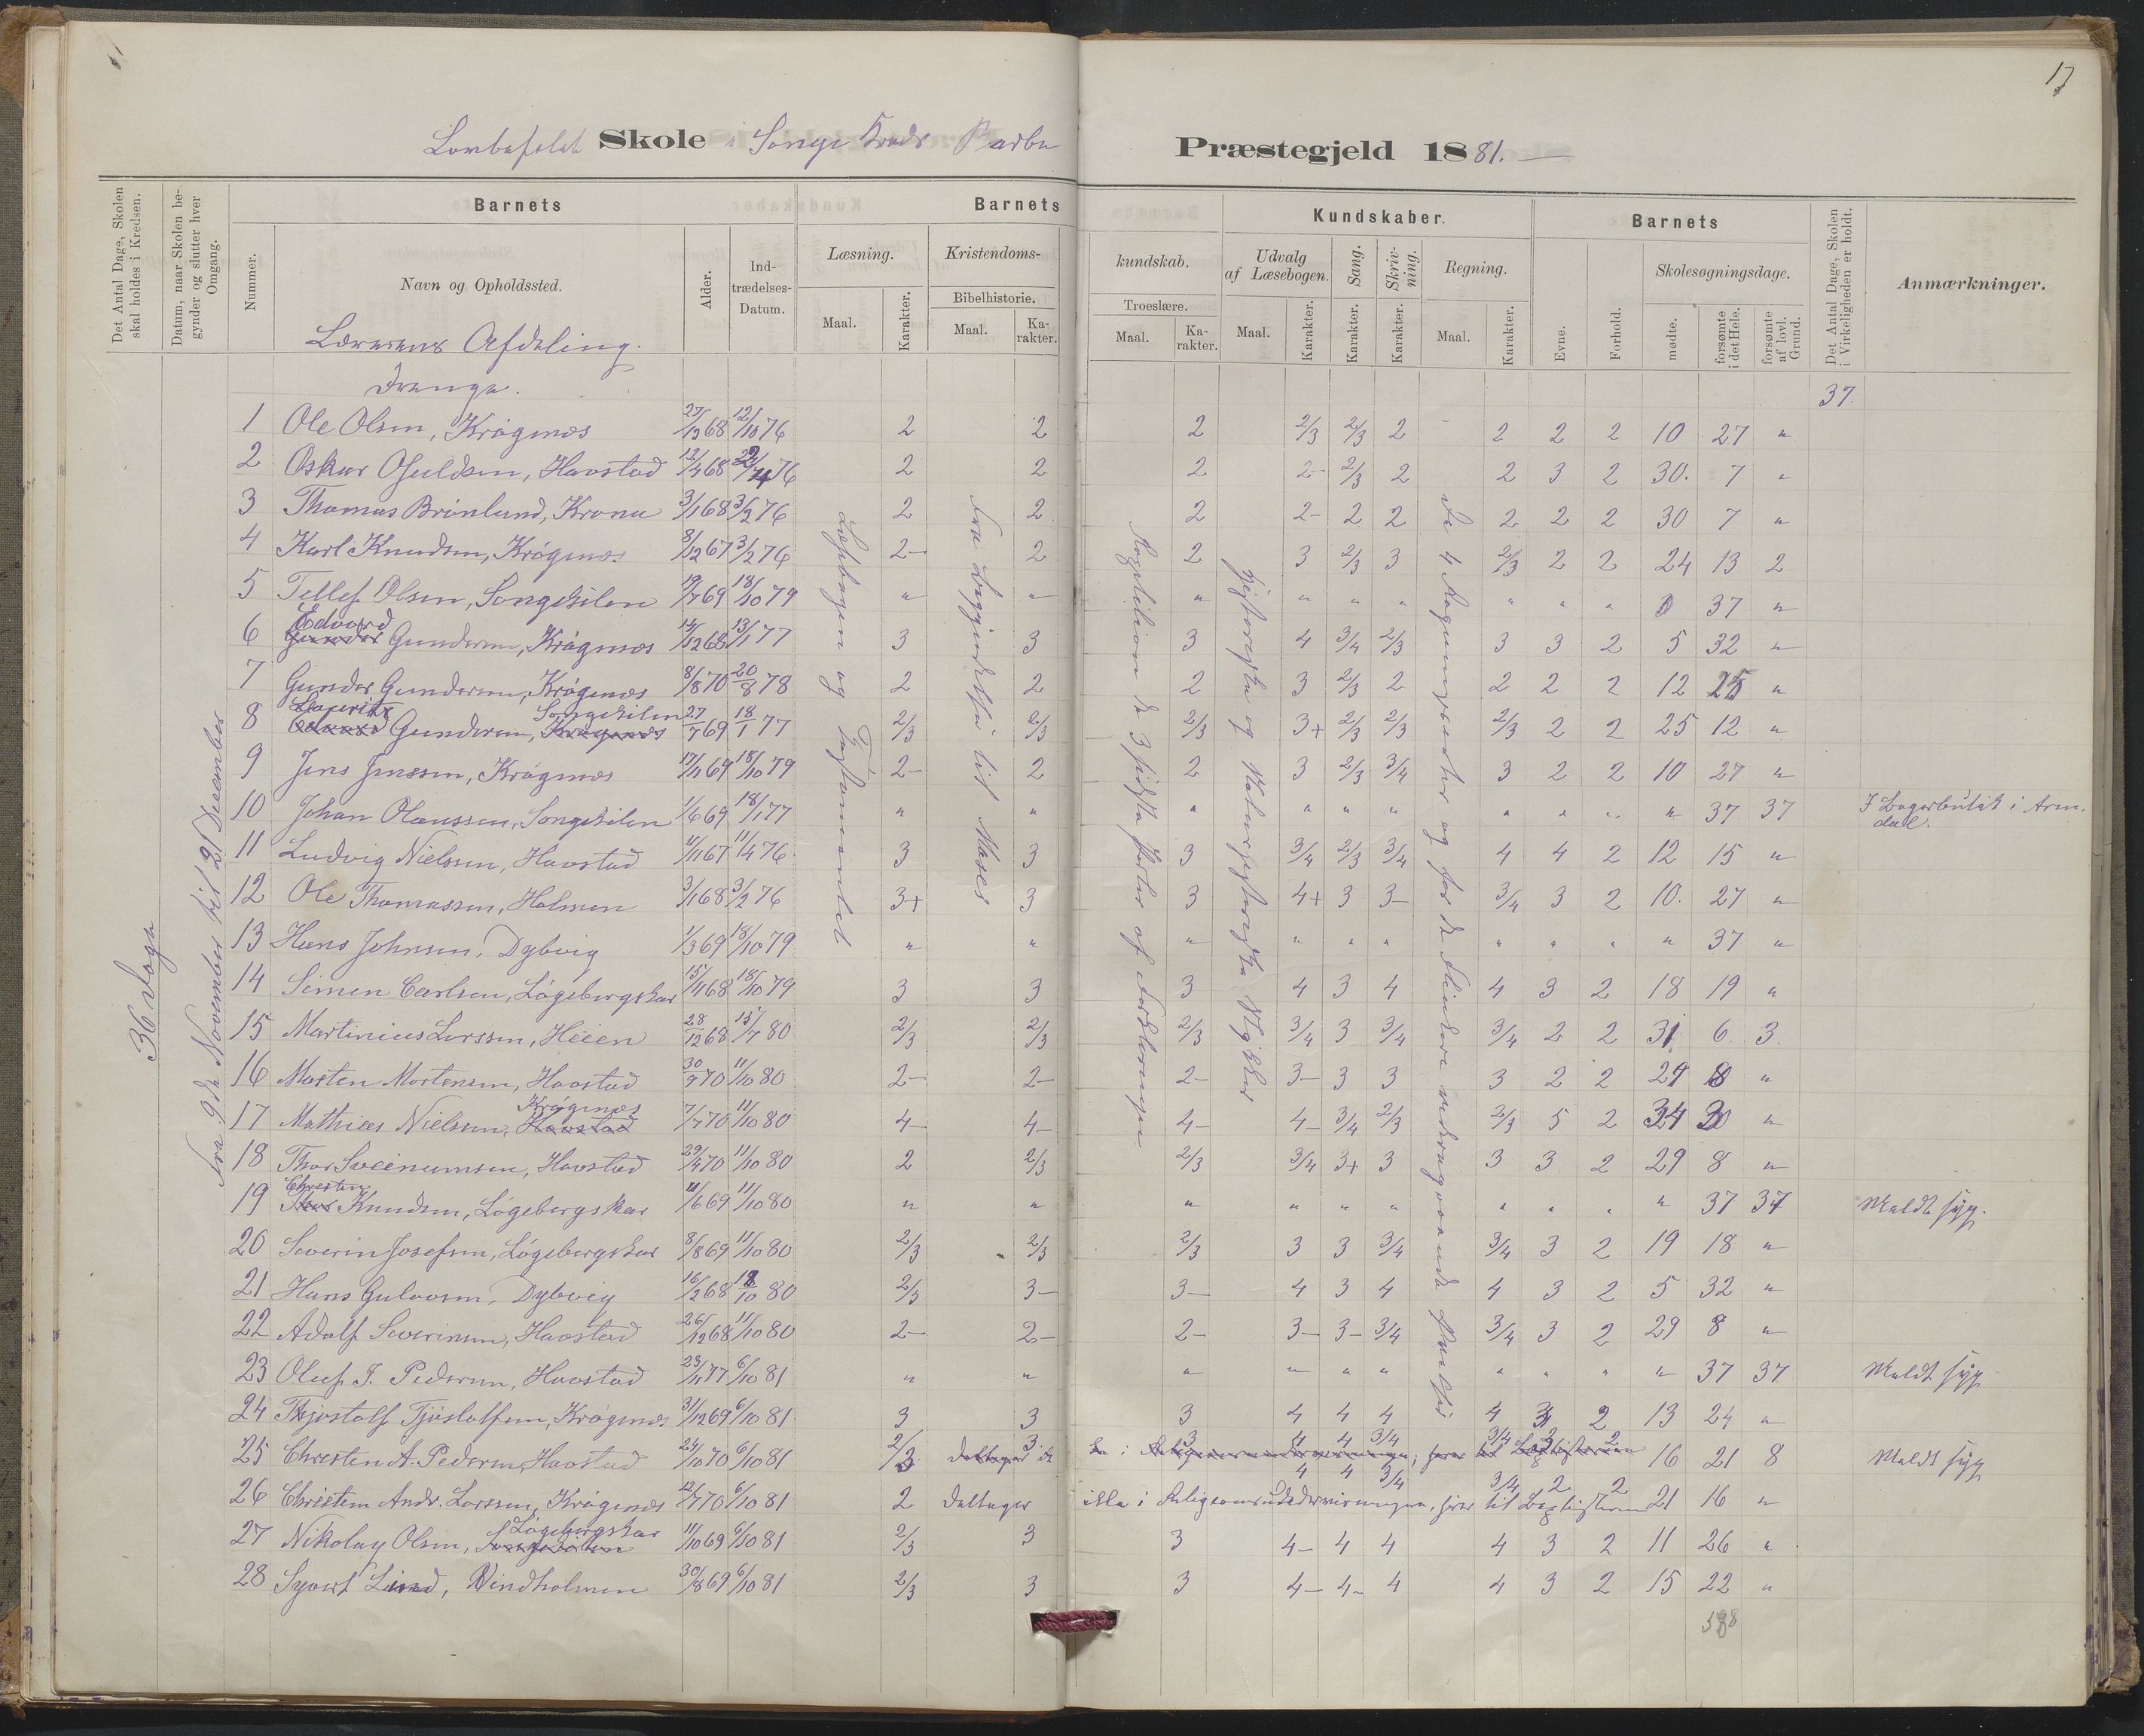 17
Skole i Songe Kreds Barbu Præstegjeld 1881.
Det Antal Dage, Skolen skal holdes i Kredsen.
Datum, naar Skolen begynder og slutter hver Omgang.
Barnets
Nummer.
Navn og Opholdssted.
Alder.
Indtrædelses-Datum.
Barnets Kundskaber.
Læsning.
Maal.
Karakter.
Kristendomskundskab.
Bibelhistorie.
Maal.
Karakter.
Troeslære.
Maal.
Karakter.
Udvalg af Læsebogen.
Maal.
Karakter.
Sang.
Karakter.
Skrivning.
Karakter.
Regning.
Maal.
Karakter.
Barnets
Evne.
Forhold.
Skolesøgningsdage.
mødte.
forsømte i det Hele.
forsømte af lovl. Grund.
Det Antal Dage, Skolen i Virkeligheden er holdt.
Anmærkninger.
Lærerens Afdeling.
Drenge.
37.
36 Dage
Fra 9de November til 21 December
Læsebogen og Testamentet
Fra Begyndelsen til Moses
Repetition de 3 sidste Parter af Forklaringen
historiske og Naturhistoriske Stykker
De 4 Regningsarter og for de flinkere
1 Ole Olsen, Krøgenæs 27/12 68 12/10 76 2 2 2 2/3 2/3 2 2 2 2 10 27 "
2 Oskar Osuldsen, Havstad 12/4 68 76 2 2 2 2- 2/3 2 2 3 2 30. 7 "
3 Thomas Brönlund, Krona 3/1 68 3/2 76 2 2 2 2- 2 2 2 2 2 30 7 "
4 Karl Knudsen, Krøgenæs 8/12 67 3/2 76 2- 2 2 3 2/3 3 2/3 2 2 24 13 2
5 Tellef Olsen, Songekilen 19/7 69 18/10 79 " " " " " " " " " 0 37 "
6 Edvard Gundersen, Krøgenæs 14/12 68 13/1 77 3 3 3 4 3/4 2/3 3 3 2 5 32 "
7 Gunder Gundersen, Krøgenæs 8/8 70 20/8 78 2 2 2 3 2/3 2 2 2 2 12 25 "
8 Lauritz Gundersen, Songekilen 27/7 69 18/1 77 2/3 2/3 2/3 3+ 2/3 2/3 2/3 2 2 25 12 "
9 Jens Jenssen, Krøgenæs 17/11 69 18/10 79 2- 2 2 3 2/3 3/4 3 2 2 10 27 "
10 Johan Olaussen, Songekilen 1/6 69 18/1 77 " " " " " " " " " " 37 37 I Bagerbutik i Arendal.
11 Ludvig Nielssen, Havstad 11/1 67 11/4 76 3 3 3 3/4 2/3 3/4 4 4 2 12 15 "
12 Ole Thomassen, Holmen 3/1 68 3/2 76 3+ 3 3 4+ 3 3- 3/4 3 2 10. 27 "
13 Hans Johnsen, Dybvig 1/3 69 18/10 79 " " " " " " " " " " 37 "
14 Simen Carlsen, Løgebergskar 15/11 68 18/10 79 3 3 3 4 3 4 4 3 2 18 19 "
15 Martinius Larssen, Heien 28/12 68 15/7 80 2/3 2/3 2/3 3/4 3 3/4 3/4 2 2 31 6. 3.
16 Morten Mortensen, Havstad 30/9 70 11/10 80 2- 2- 2- 3- 3 3 3 2 2 29 8 "
17 Mathias Nielssen, Krøgenæs Havstad 7/7 70 11/10 80 4- 4- 4- 4- 3/4 2/3 2/3 5 2 34 3 "
18 Thor Sveinumsen, Havstad 29/4 70 11/10 80 2 2/3 2/3 3/4 3+ 3 3 3 2 29 8 "
19 Chresten Knudsen, Løgebergskar 11/6 69 11/10 80 " " " " " " " " " " 37 37 Meldt syg.
20 Severin Josefsen, Løgebergskar 8/8 69 11/10 80 2/3 2/3 2/3 3 3 3/4 3/4 3 2 19 18 "
21 Hans Gulovsen, Dybvig 16/2 68 18/10 80 2/3 3- 3- 4 3 4 4 3 2 5 32 "
22 Adolf Severinsen, Havstad 26/12 68 11/10 80 2- 2- 2- 3- 3- 3/4 3/4 3 2 29 8 "
23 Oluf J. Pedersen, Havstad 23/11 77 6/10 81 " " " " " " " " " " 37 37 Meldt syg
24 Thjostolf Tjøstolfsen, Krøgenæs 31/12 69 6/10 81 3 3 3 4 4 4 4 3 2 13 24 "
25 Chresten A. Pedersen, Havstad 24/10 70 6/10 81 2/3 3 3 4 4 3/4 3/4 3 2 16 21 8 Meldt syg
26 Christen Andr. Larssen, Krøgenæs 12/7 70 6/10 81 2 Deltager ikke i Religionsundervisningen, hører til Baptisterne 4 4 3/4 3/4 2 2 21 16 "
27 Nikolay Olsen, Løgebergskar Songekilen 11/10 69 6/10 81 2/3 3 3 4- 4 4 4 3 2 11 26 "
28 Syvert Lind, Vindholmen 30/8 69 6/10 81 2/3 3 3 4- 4- 4 4 3 2 15 22 "